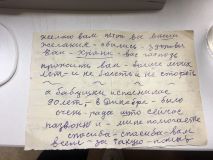 желаю вам чтоб все ваши
желания - сбылись - здоровья
вам -
прожить вам - больше моих
лет - и не болеть и не стареть
а бабушки исполнилось
90 лет, в Октябре - было
очень рада што сейчас
позвонил и - мне помогаете
спасибо - спасибо - вам
всем - за такую - помощь